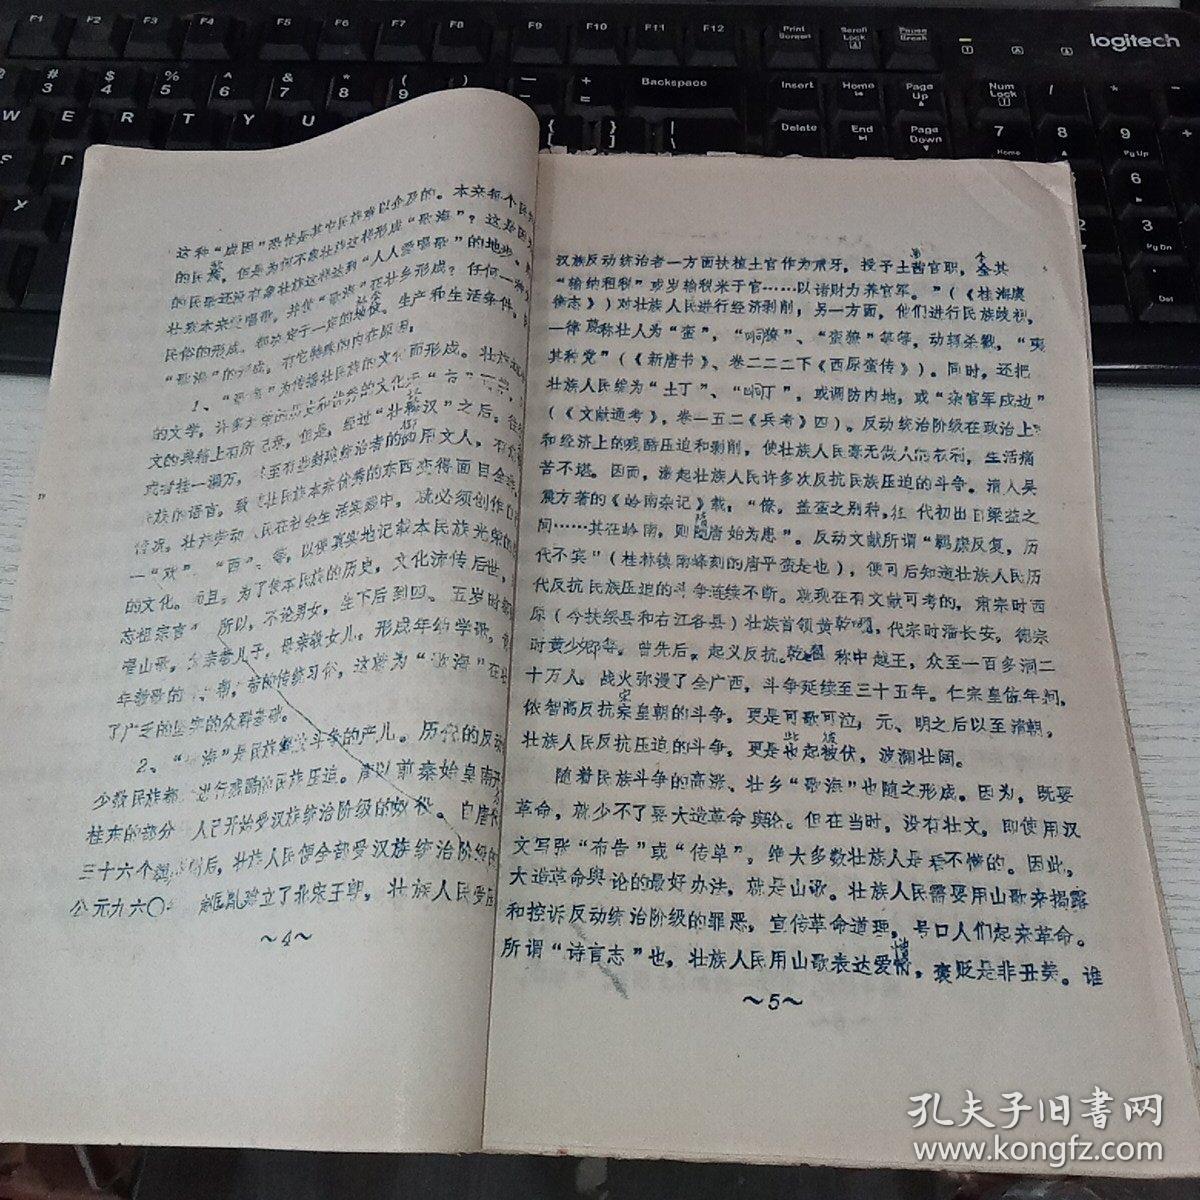 这种“成因”恐怕是其它民族难以企及的。本来每个民
的民族，但是为何不象壮族这样形成“歌海”？这是因
的民歌还没有象壮族这样达到“人人爱唱歌”的地步。
壮族本来爱唱歌，并使“歌海”在壮乡形成？任何一种
民俗的形成，都决定于一定的社会、生产和生活条件，
“歌海”的形成，有它特殊的内在原因：
1、“歌海”为传播壮民族的文化而形成。壮族
的文学，许多丰富的历史和优秀的文化无“言”
文的典籍上有所记录，但是，经过“壮译汉”之后。往
或者挂一漏万，甚至有些封建统治者的御用文人，有
民族的语言，致使壮民族本来优秀的东西变得面目全
情况，壮族劳动人民在社会生活实践中，就必须创作
一“欢”、“西”、等，以便真实地记载本民族光荣的
的文化。而且，为了使本民族的历史，文化流传后世，
忘祖宗言”所以，不论男女，生下后到四、五岁时
唱山歌，父亲教儿子，母亲教女儿。形成年幼学歌，
年教歌的传习俗，这就为“歌海”在
了广泛的坚实的众群基础。
2、“歌海”是民族解放斗争的产儿。历代的反动
少数民族都进行残酷的民族压迫。唐以前秦始皇南开
桂东的部分人已开始受汉族统治阶级的奴役。自唐
三十六个后，壮族人民便全部受汉族统治阶级的
公元九六〇年赵匡胤建立了北宋王朝，壮族人民受压
～4～
汉族反动统治者一方面扶植土官作为爪牙，授予土酋官职，令其
“输纳租税”或岁输税米于官……以诸财力养官军。”（《桂海虞
衡志》）对壮族人民进行经济剥削，另一方面，他们进行民族歧视，
一律蔑称壮人为“蛮”，“峒獠”、“蛮獠”等等，动辄杀戮，“夷
其种党”（《新唐书》、卷二二二下《西原蛮传》）。同时，还把
壮族人民编为“土丁”、“峒丁”，或调防内地，或“杂官军戍边”
（《文献通考》，卷一五二《兵考》四）。反动统治阶级在政治上
和经济上的残酷压迫和剥削，使壮族人民毫无做人的权利，生活痛
苦不堪。因而，激起壮族人民许多次反抗民族压迫的斗争。清人吴
震方著的《岭南杂记》载，“僚，盖蛮之别种，往代初出自梁益之
间……其在岭南，则隋唐始为患”。反动文献所谓“羁縻反复，历
代不宾”（桂林镇南峰刻的唐平蛮是也），便可后知道壮族人民历
代反抗民族压迫的斗争连续不断。就现在有文献可考的，肃宗时西
原（今扶绥县和右江各县）壮族首领黄乾曜，代宗时潘长安，德宗
时黄少卿等。曾先后，起义反抗。乾曜称中越王，众至一百多洞二
十万人。战火弥漫了全广西，斗争延续至三十五年。仁宗皇佑年间，
侬智高反抗宋皇朝的斗争，更是可歌可泣；元、明之后以至清朝，
壮族人民反抗压迫的斗争，更是此起彼伏，波澜壮阔。
随着民族斗争的高涨、壮乡“歌海”也随之形成。因为，既要
革命，就少不了要大造革命舆论。但在当时，没有壮文，即使用汉
文写张“布告”或“传单”，绝大多数壮族人是看不懂的。因此，
大造革命舆论的最好办法，就是山歌。壮族人民需要用山歌来揭露
和控诉反动统治阶级的罪恶，宣传革命道理，号口人们起来革命。
所谓“诗言志”也，壮族人民用山歌表达爱憎，褒贬是非丑美。谁
～5～
logitech
孔夫子旧书网
www.kongfz.com